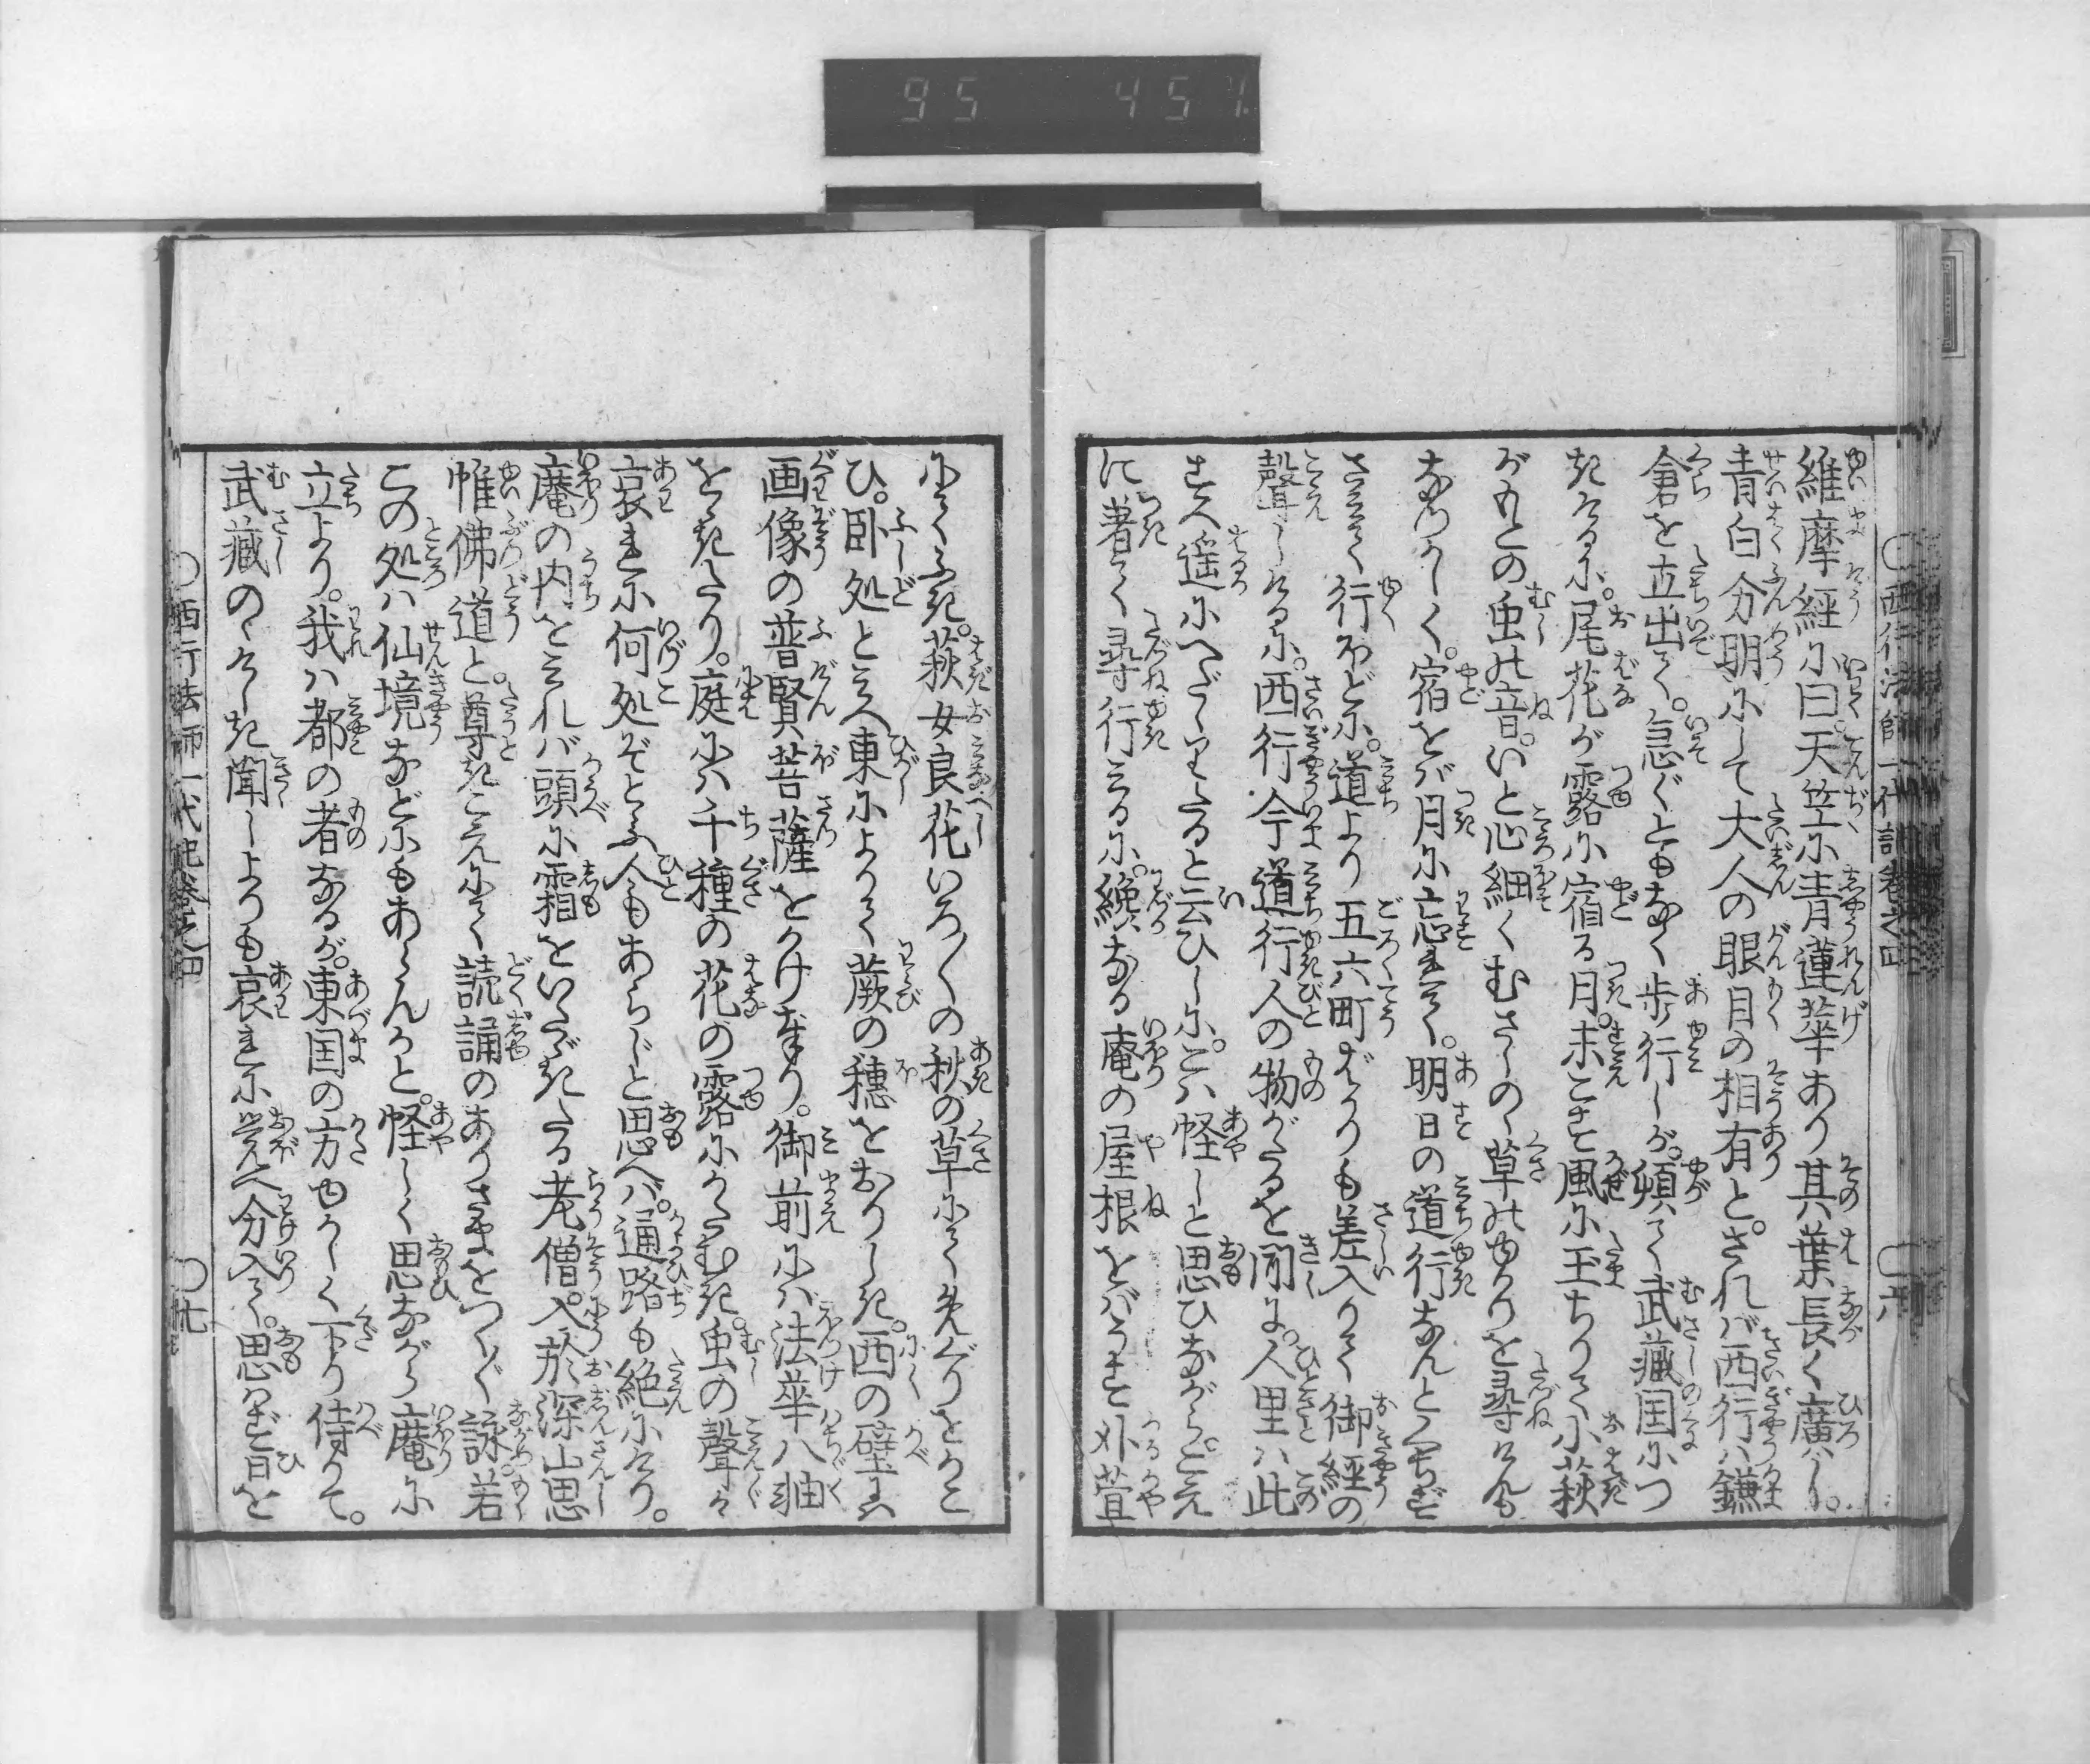 95 457
維摩經に曰。天竺に青蓮華あり其葉長く廣ハし。
青白分明にして大人の眼目の相有と。されバ西行ハ鎌
倉を立出て。急ぐともなく歩行しが。頓て武藏国につ
きけるに。尾花が露に宿る月。末こす風に玉ちりて小萩
がもとの虫の音。いと心細くむさしのゝ草のゆかりを尋けんも
なつかしく。宿をバ月に忘れて。明日の道行なんとくちず
さみて行ほどに。道より五六町ばかりも差入りて御經の
聲しけるに。西行今道行人の物がたるを聞に。人里ハ此
すへ遥にへだゝりたると云ひしに。こハ怪しと思ひながら。こゑ
に著て尋行みるに。纔なる庵の屋根をバうす外萱
にてふき。萩女良花いろ〳〵の秋の草にてめぐりをかこ
ひ。臥処とみへ東によりて蕨の穂をおりしき。西の壁には
画像の普賢菩薩をかけ奉り。御前にハ法華八軸
をゝきたり。庭にハ千種の花の露にかたむき。虫の聲々
哀れに何処ぞとふ人もあらじと思へバ。通路も絶にけり。
庵の内をミれバ頭に霜をいたゞきたる老僧。入於深山思
惟佛道と。尊きこゑにて読誦のありさまをつくづく詠若
この処ハ仙境などにもあらんかと。怪しく思ながら庵に
立より。我ハ都の者なるが。東国の方ゆかしく下り侍りて。
武藏のゝけしき聞しよりも哀れに覚へ分入て。思はず日を
〇西行法師一代記巻之四
〇廿